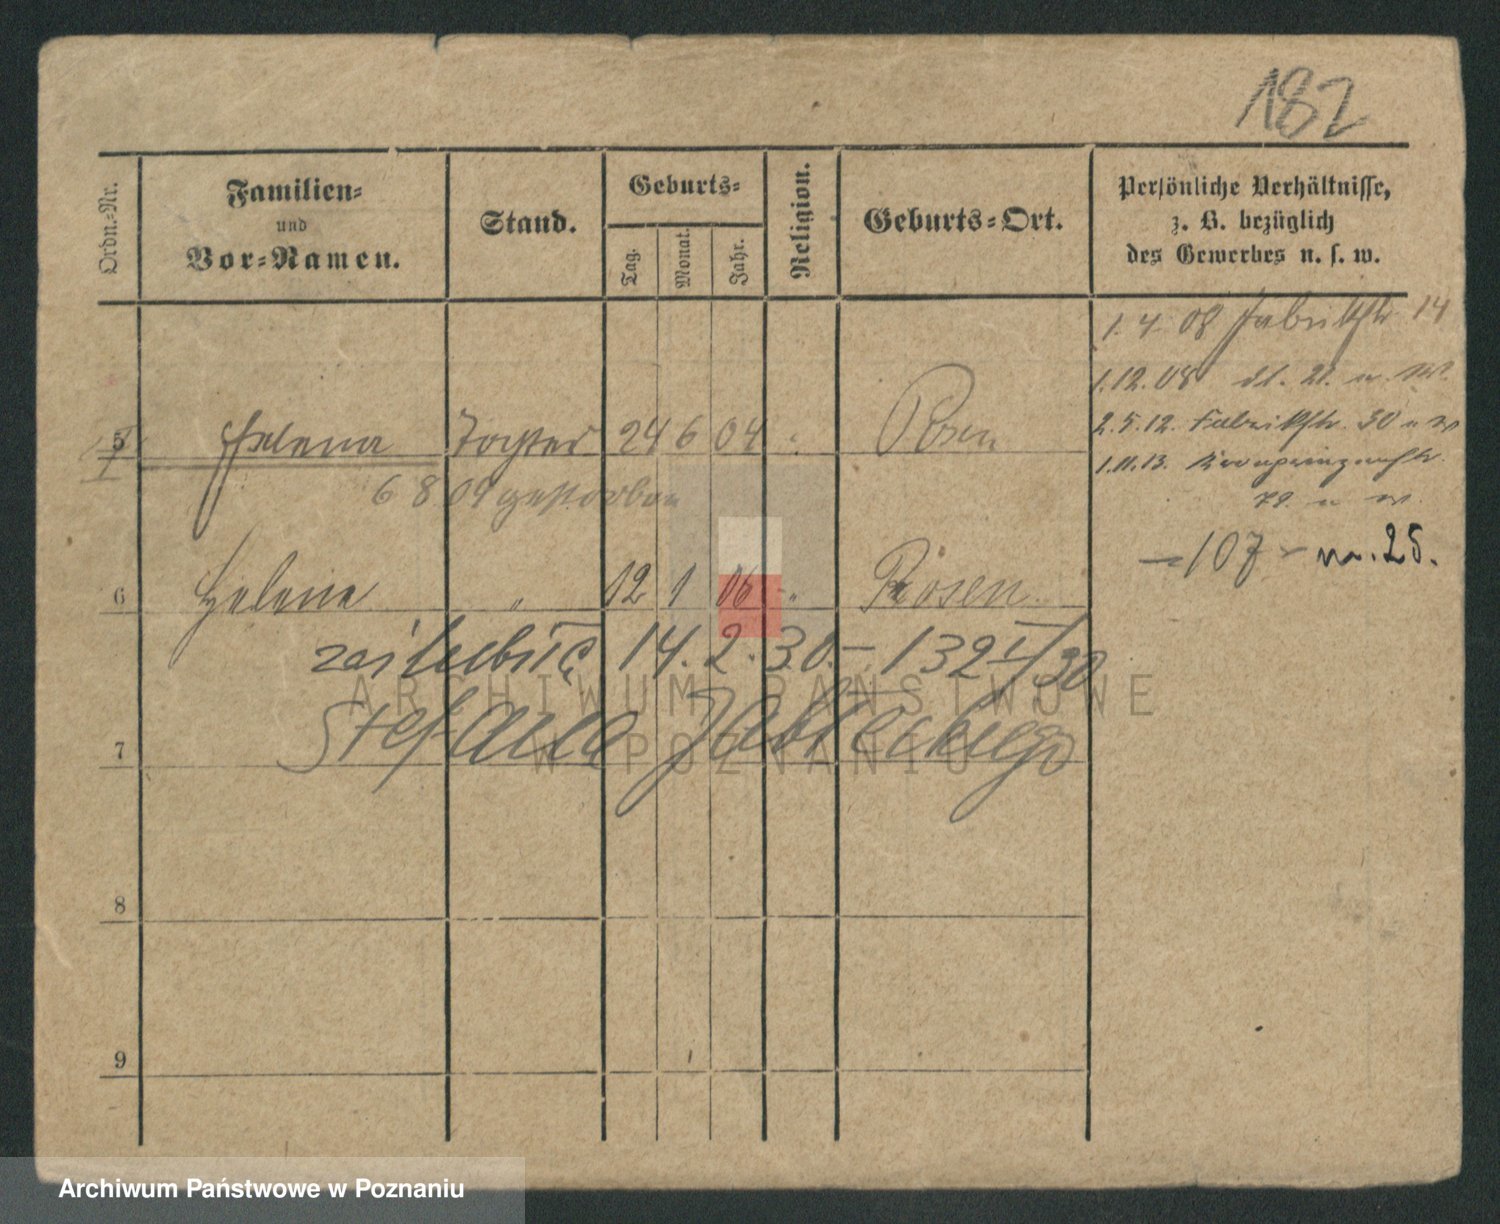 182
Ordn.-Nr.
Familien-
und
Vor-Namen.
Stand.
Geburts-
Tag.
Monat.
Jahr.
Religion.
Geburts-Ort.
Persönliche Verhältnisse,
z. B. bezüglich
des Gewerbes u. s. w.
1. 4. 08 Fabrikstr 14
1.12.08 dt. 21. u. W.
5 Helena Tochter 24 6 04 " Posen
2.5.12. Fabrikstr. 30 u W
1.11.13. Kronprinzenstr.
79. u W.
6 8 09 gestorben
— 107 — m. 25.
6 Helene " 12 1 06 " Posen
zaślubiła 14. 2. 30. – 132 I/30
7 Stefana Jabłeckiego
8
9
ARCHIWUM PAŃSTWOWE
W POZNANIU
Archiwum Państwowe w Poznaniu